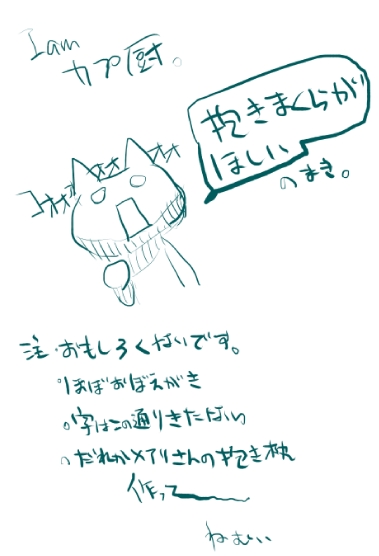 I am
カプ厨。
抱きまくらが
ほしい
のまき。
コオオオオオオオ
注・おもしろくないです。
ほぼおぼえがき
字はこの通りきたない
だれかメアリさんの抱き枕
作って
ねむい